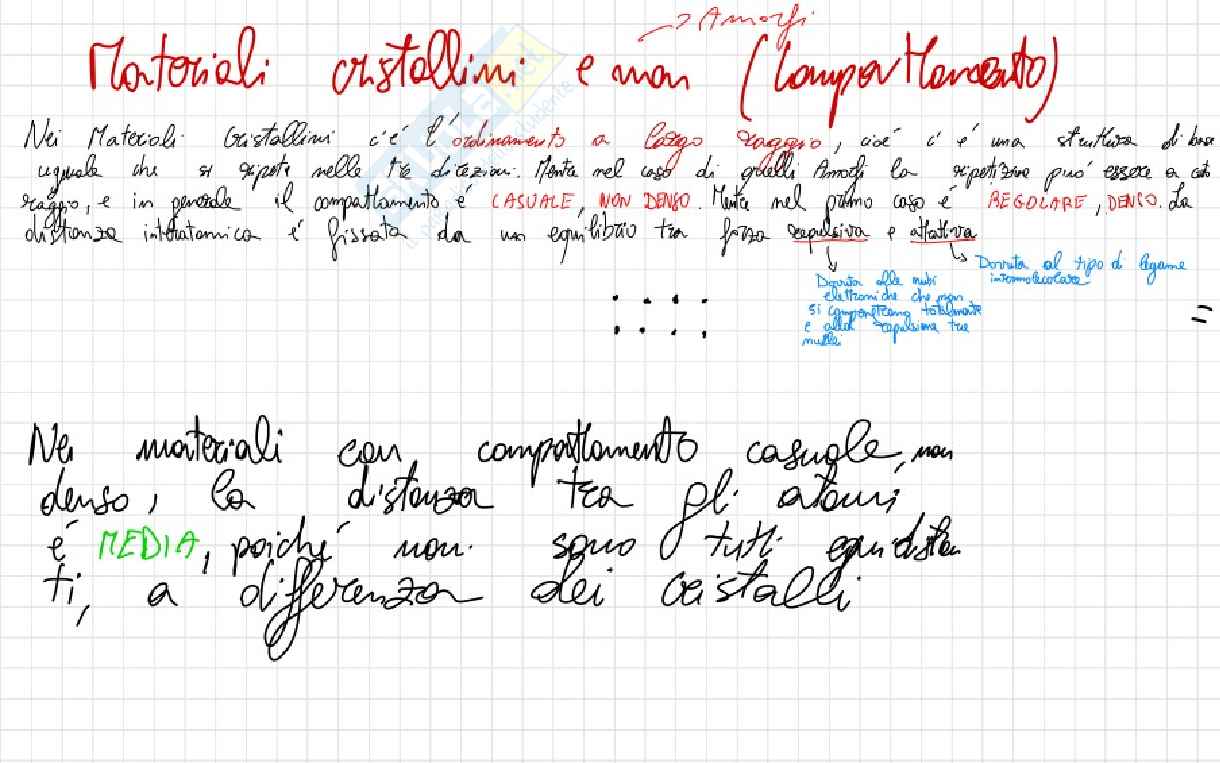 → Amorfi
Materiali cristallini e non (Compattamento)
Nei Materiali Cristallini c'é l'ordinamento a largo raggio, cioé c'é una struttura di base
uguale che si ripete nelle tre direzioni. Mentre nel caso di quelli Amorfi la ripetizione può essere a corto
raggio, e in generale il compattamento é CASUALE, NON DENSO. Mentre nel primo caso é REGOLARE, DENSO. La
distanza interatomica é fissata da un equilibrio tra forza repulsiva e attattiva
Dovuta al tipo di legame
intermolecolare
Dovuta alle nubi
elettroniche che non
si compenetrano totalmente
e alla repulsione tra
nuclei
=
Nei materiali con compattamento casuale, non
denso, la distanza tra gli atomi
é MEDIA, poiché non sono tutti equidistan
ti, a differenza dei cristalli